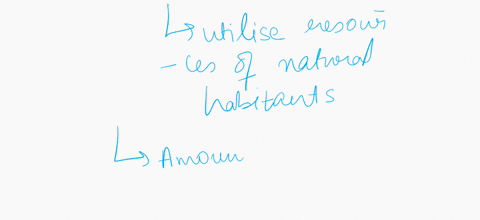 ↳ utilise resour
-ces of natural
habitants
↳ Amoun